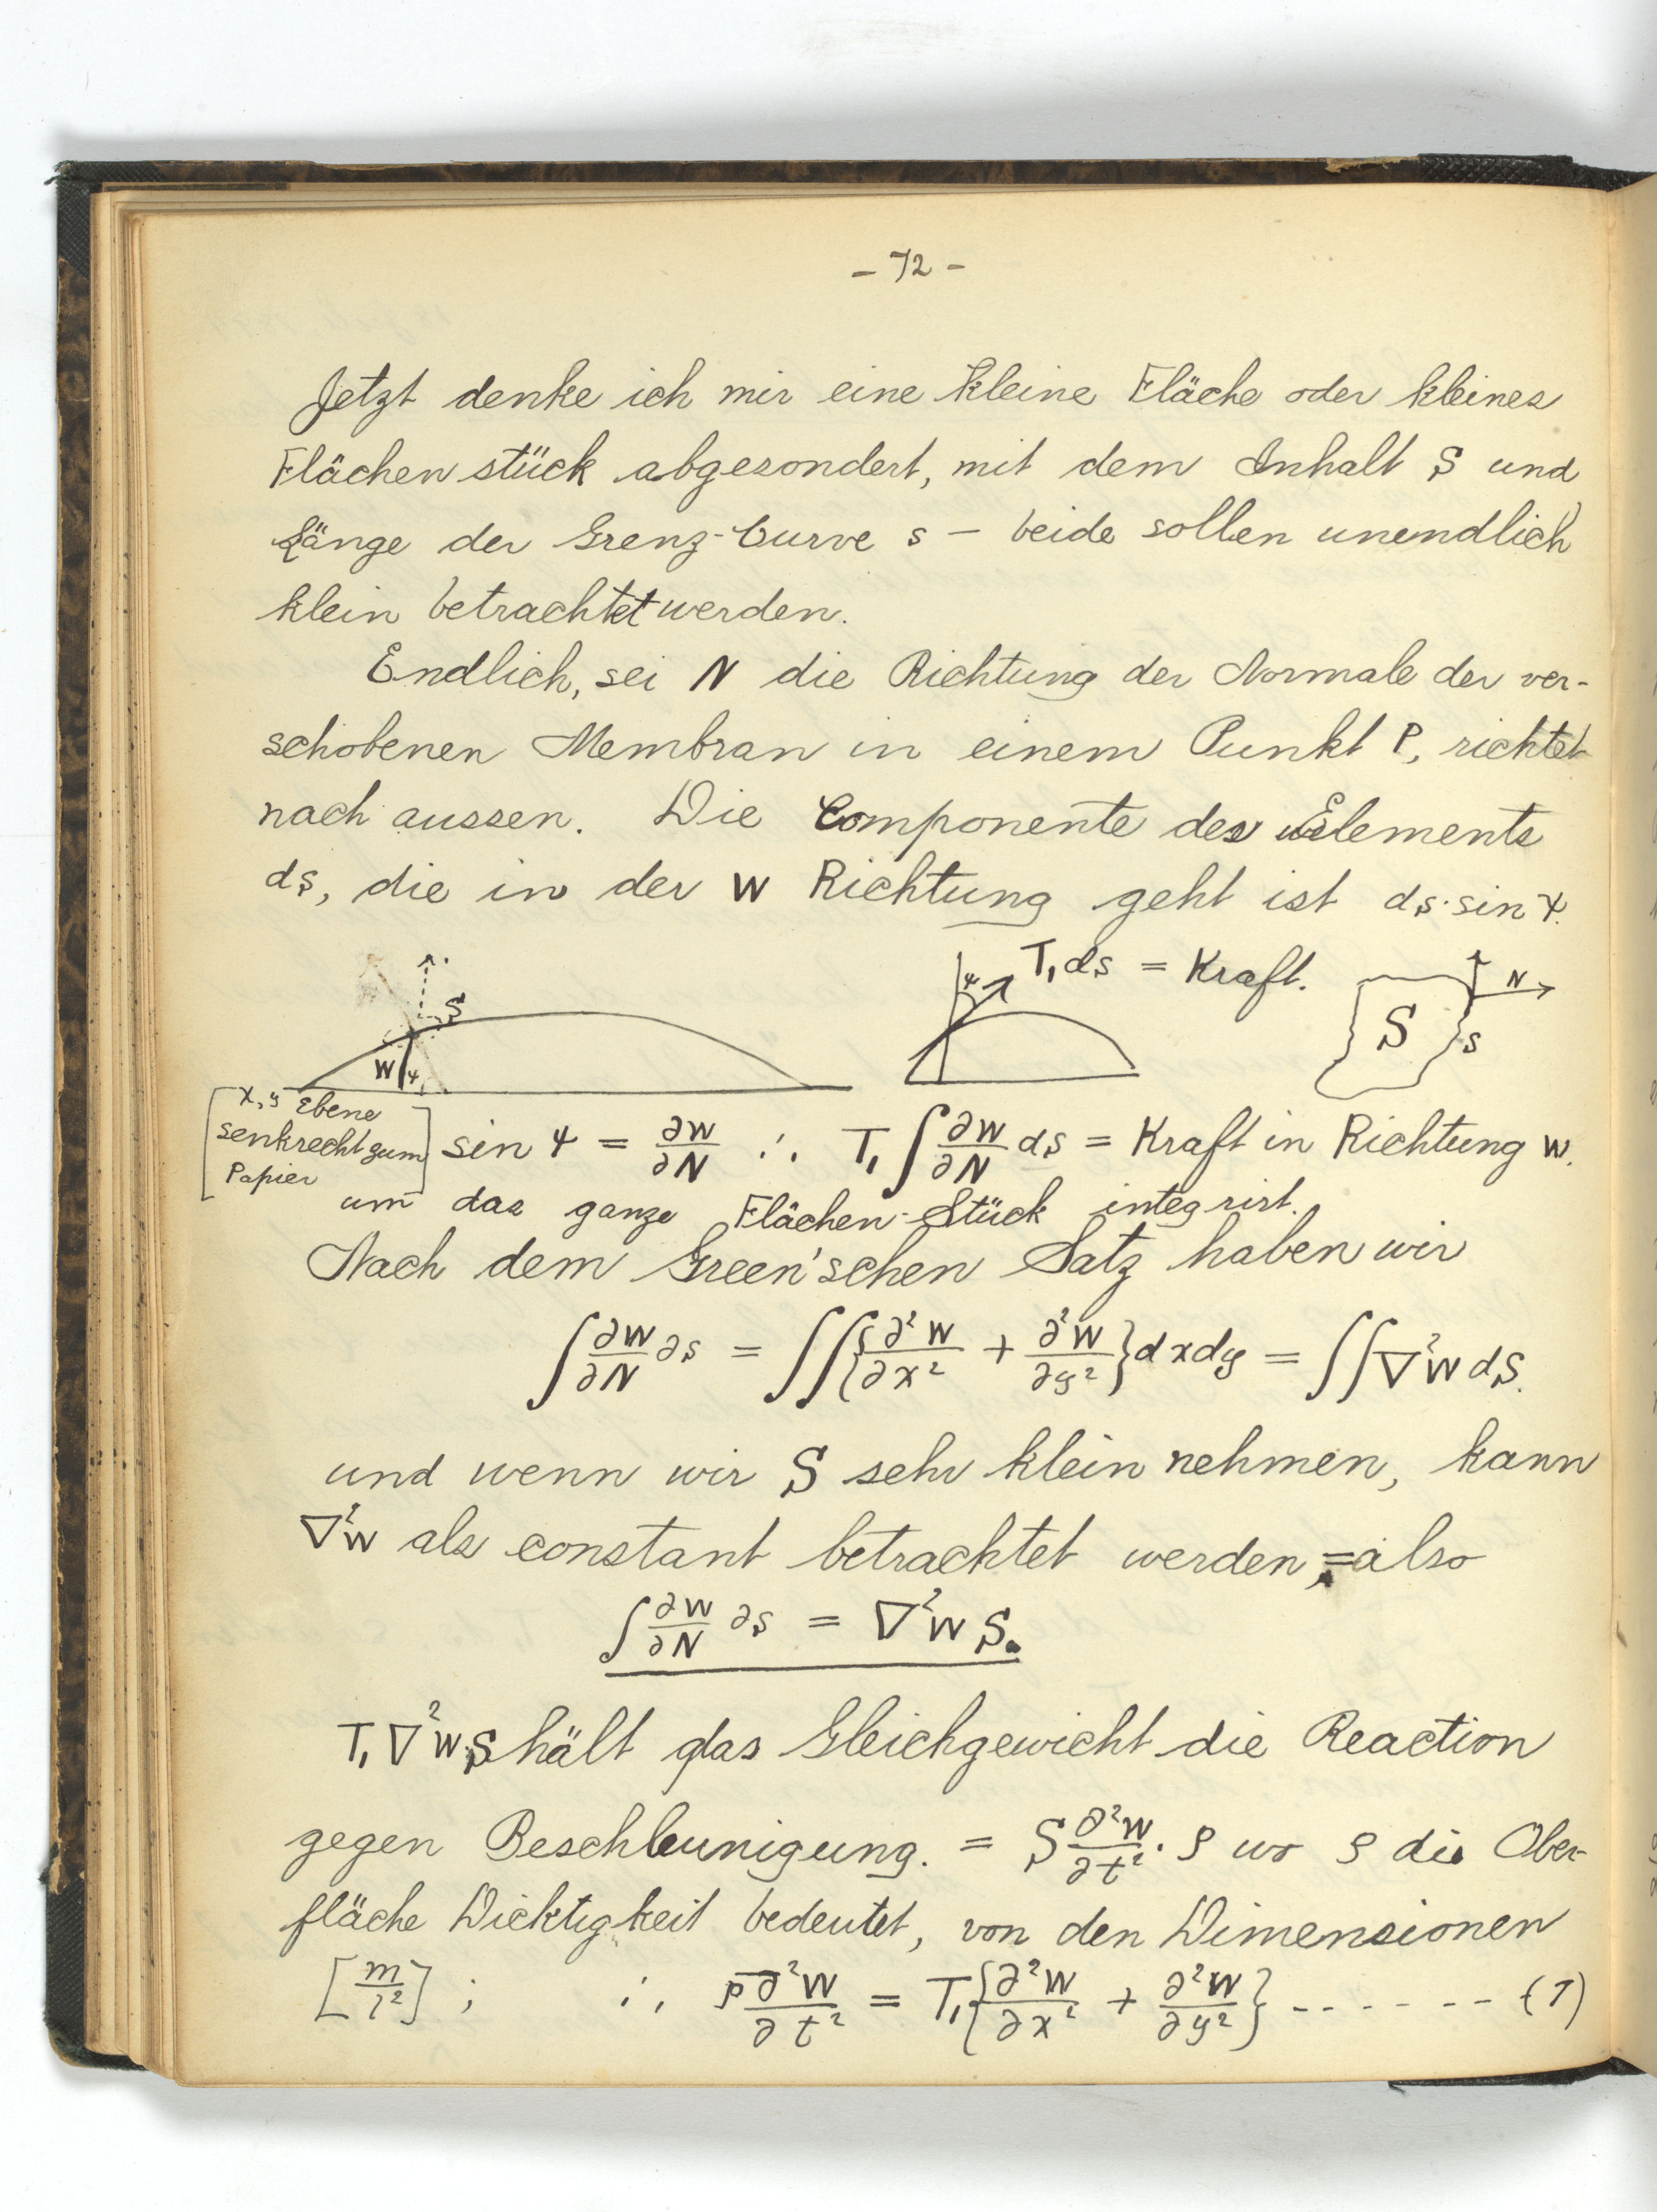 - 72 -
Jetzt denke ich mir eine kleine Fläche oder kleines
Flächenstück abgesondert, mit dem Inhalt S und
Länge der Grenz-Curve s — beide sollen unendlich
klein betrachtet werden.
Endlich, sei N die Richtung der Normale der ver-
schobenen Membran in einem Punkt P, richtet
nach aussen. Die Componente des Elements
ds, die in der W Richtung geht ist ds·sin ψ.
S
W ψ
ψ T₁ds = Kraft.
S N s
x, y Ebene
senkrecht zum
Papier
sin ψ = ∂W/∂N ∴ T₁∫∂W/∂N ds = Kraft in Richtung W.
um das ganze Flächen-Stück integrirt.
Nach dem Green'schen Satz haben wir
∫∂W/∂N ∂s = ∬{∂²W/∂x² + ∂²W/∂y²}dxdy = ∬∇²W dS.
und wenn wir S sehr klein nehmen, kann
∇²W als constant betrachtet werden, = also
∫∂W/∂N ∂s = ∇²W S.
T₁∇²W·S hält das Gleichgewicht die Reaction
gegen Beschleunigung. = S ∂²W/∂t² · ρ wo ρ die Ober-
fläche Dicktigkeit bedeutet, von den Dimensionen
[m/l²] ; ∴ ρ ∂²W/∂t² = T₁{∂²W/∂x² + ∂²W/∂y²} - - - - - - - (1)